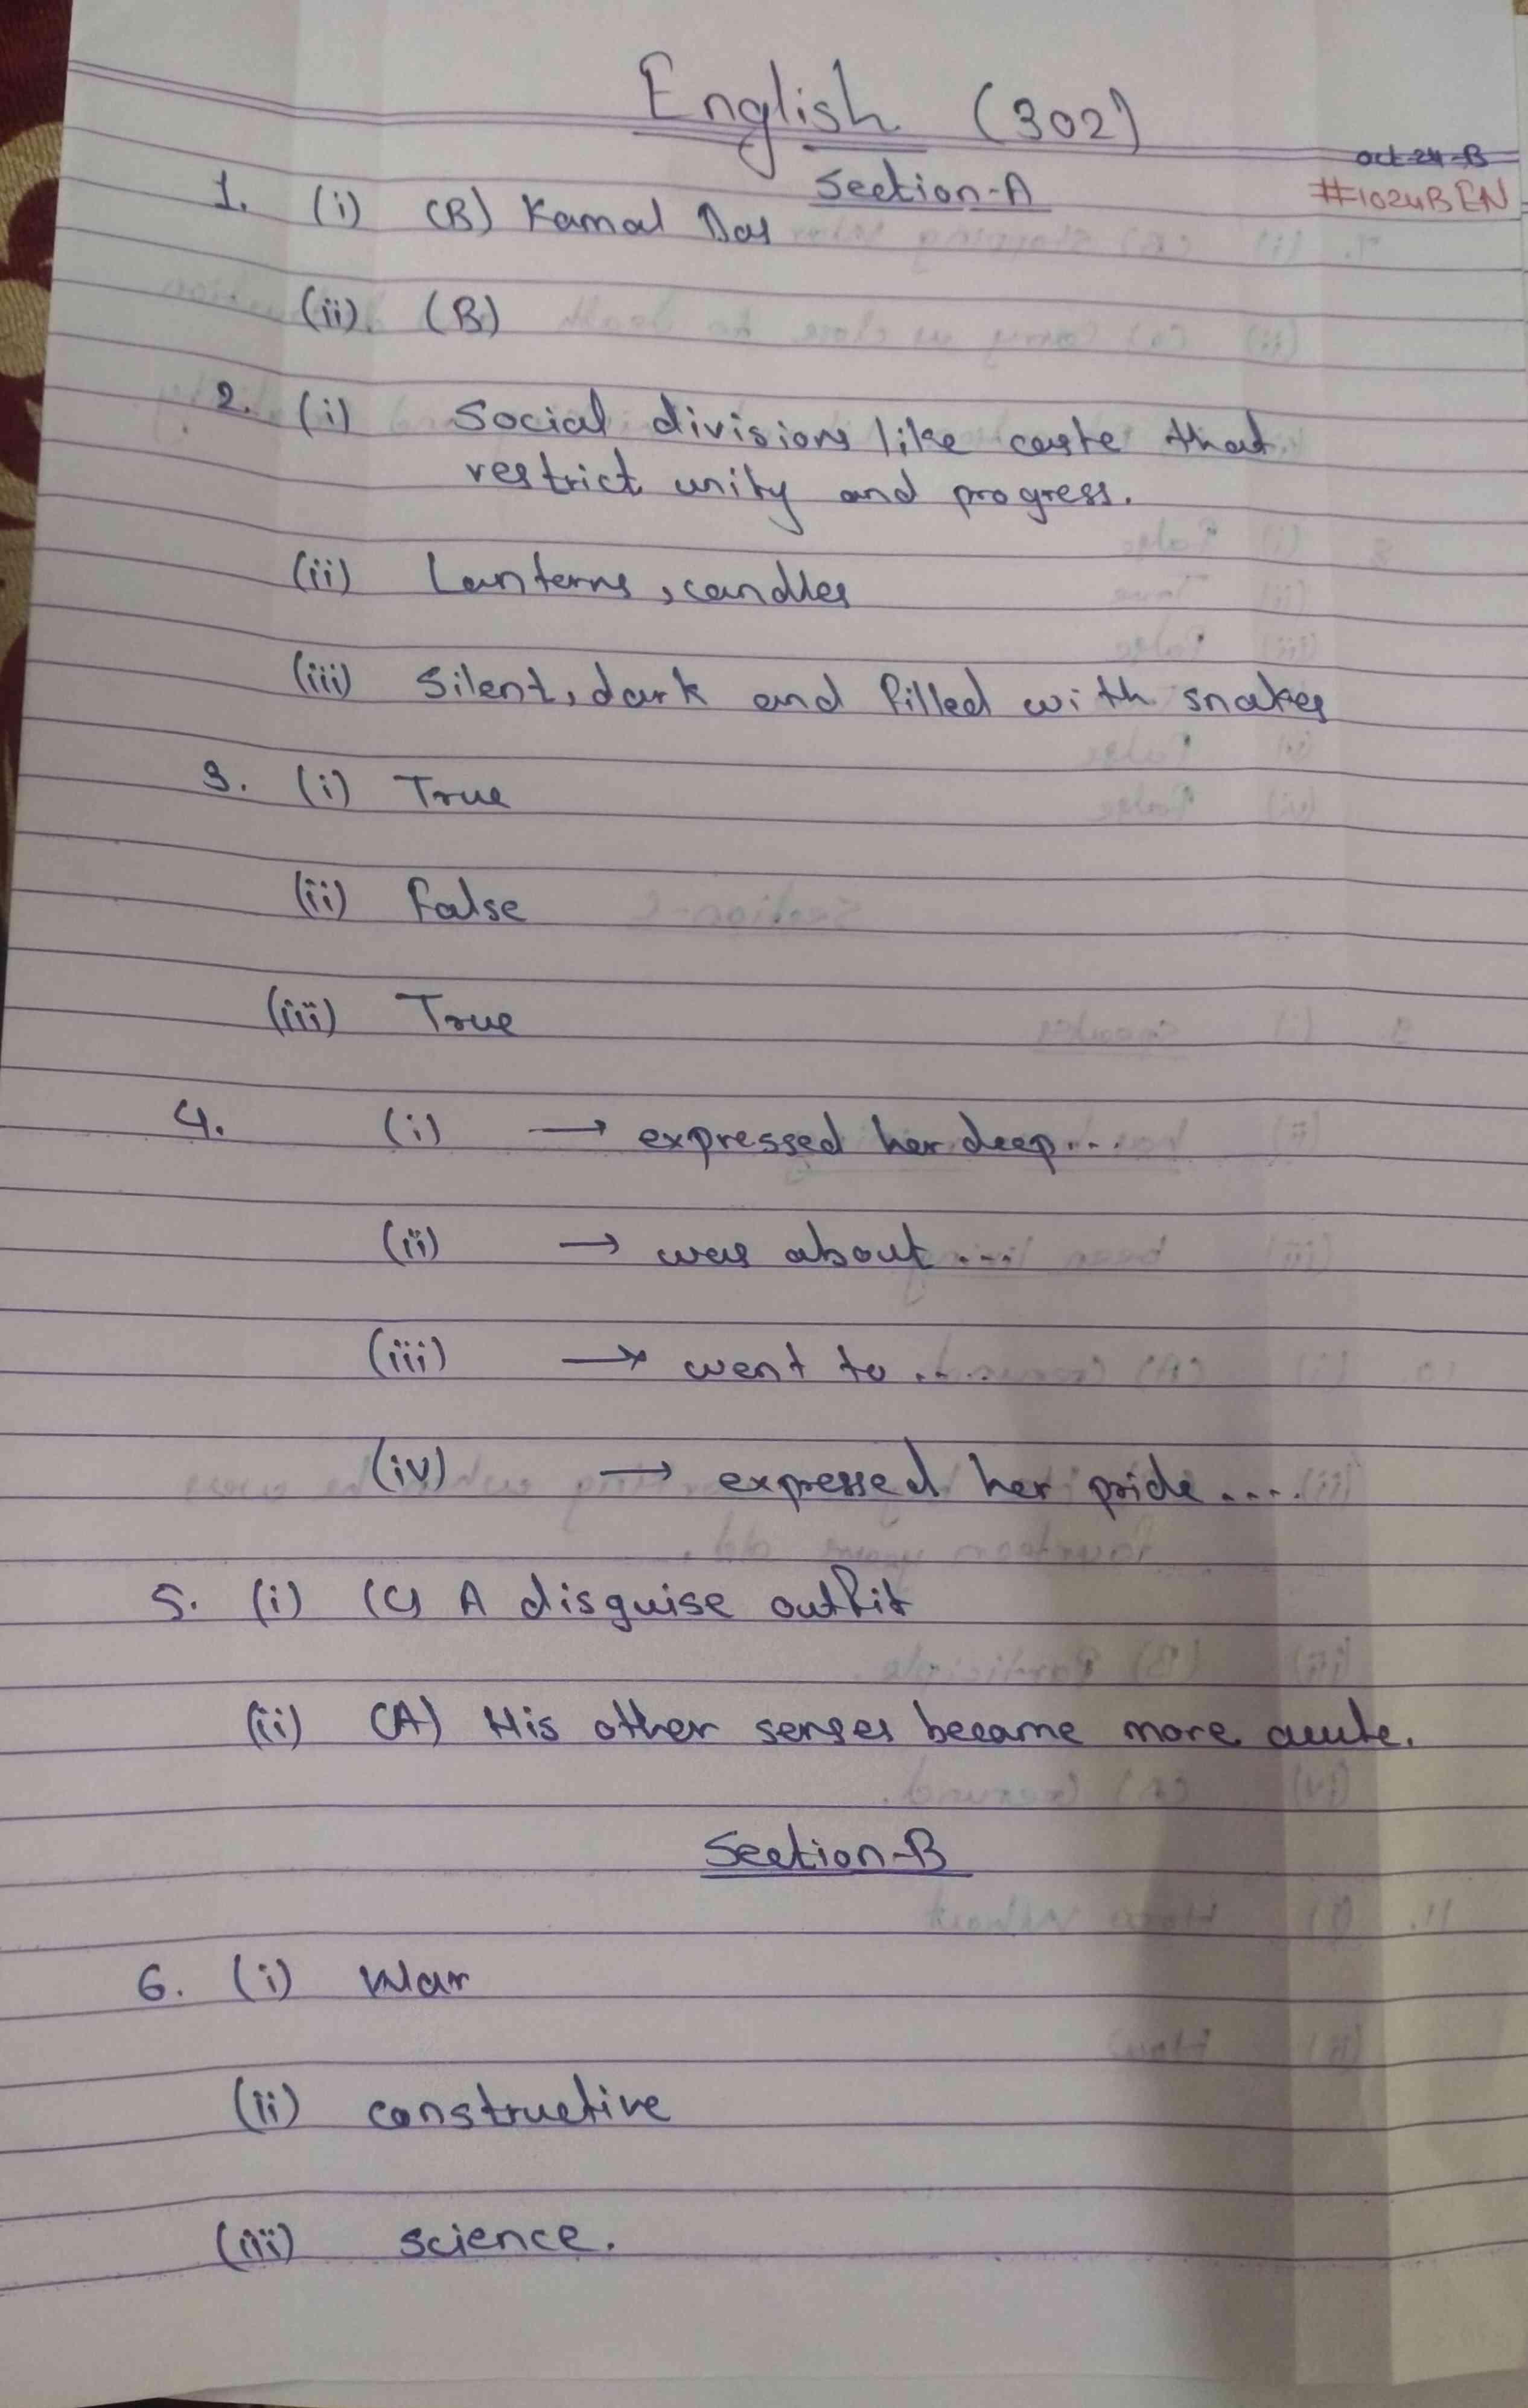 English (302)
oct-24-B
Section-A
#1024BEN
1. (i) (B) Kamal Das
(ii). (B)
2. (i) Social divisions like caste that
restrict unity and progress.
(ii) Lanterns, candles
(iii) Silent, dark and filled with snakes
3. (i) True
(ii) False
(iii) True
4. (i) → expressed her deep...
(ii) → was about ....
(iii) → went to ....
(iv) → expressed her pride ....
5. (i) (C) A disguise outfit
(ii) (A) His other senses became more acute.
Section-B
6. (i) War
(ii) constructive
(iii) science.